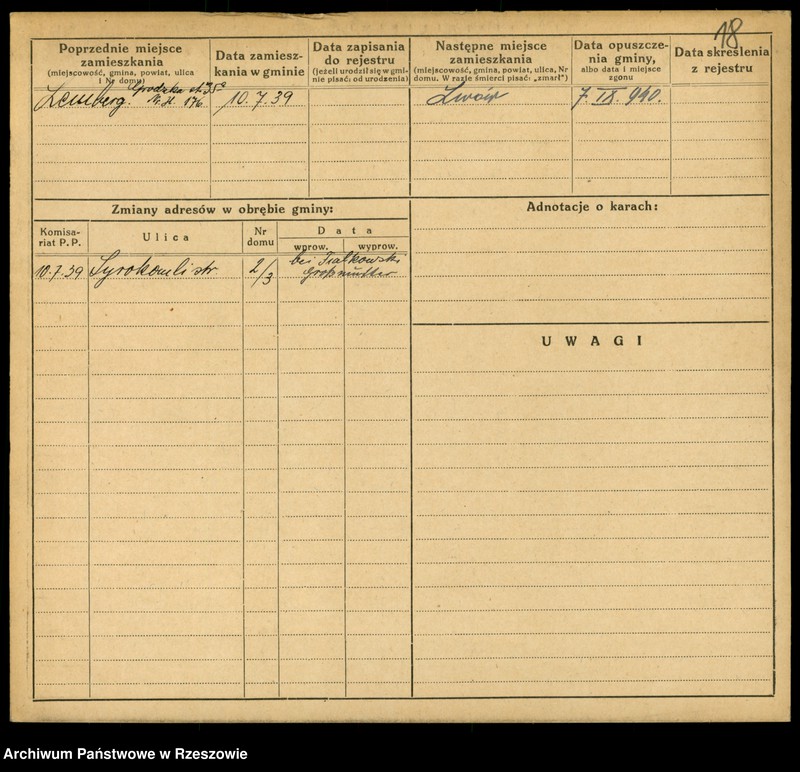 18
Poprzednie miejsce
zamieszkania
(miejscowość, gmina, powiat, ulica
i Nr domu)
Data zamiesz-
kania w gminie
Data zapisania
do rejestru
(jeżeli urodził się w gmi-
nie pisać: od urodzenia)
Następne miejsce
zamieszkania
(miejscowość, gmina, powiat, ulica, Nr
domu. W razie śmierci pisać: „zmarł")
Data opuszcze-
nia gminy,
albo data i miejsce
zgonu
Data skreślenia
z rejestru
Grodzka
Lemberg. 176
10.7.39
Lwów
7.IX.940.
Zmiany adresów w obrębie gminy:
Komisa-
riat P. P.
Ulica
Nr
domu
Data
wprow.
wyprow.
10.7.39 Syrokomli str 2/3
bei Fialkowski
Großmutter
Adnotacje o karach:
UWAGI
Archiwum Państwowe w Rzeszowie